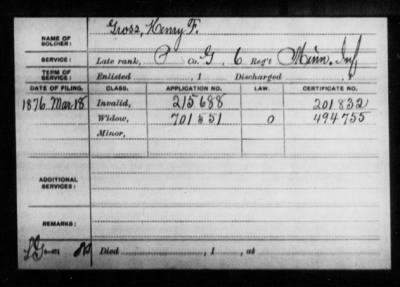 NAME OF SOLDIER: Gross, Henry F.
SERVICE: Late rank, P Co. G, 6 Reg't Minn. Inf
TERM OF SERVICE: Enlisted , 1 Discharged
DATE OF FILING. CLASS. APPLICATION NO. LAW. CERTIFICATE NO.
1876 Mar 18 Invalid, 215688 201832
Widow, 701551 0 494755
Minor,
ADDITIONAL SERVICES:
REMARKS:
Died , 1 , at